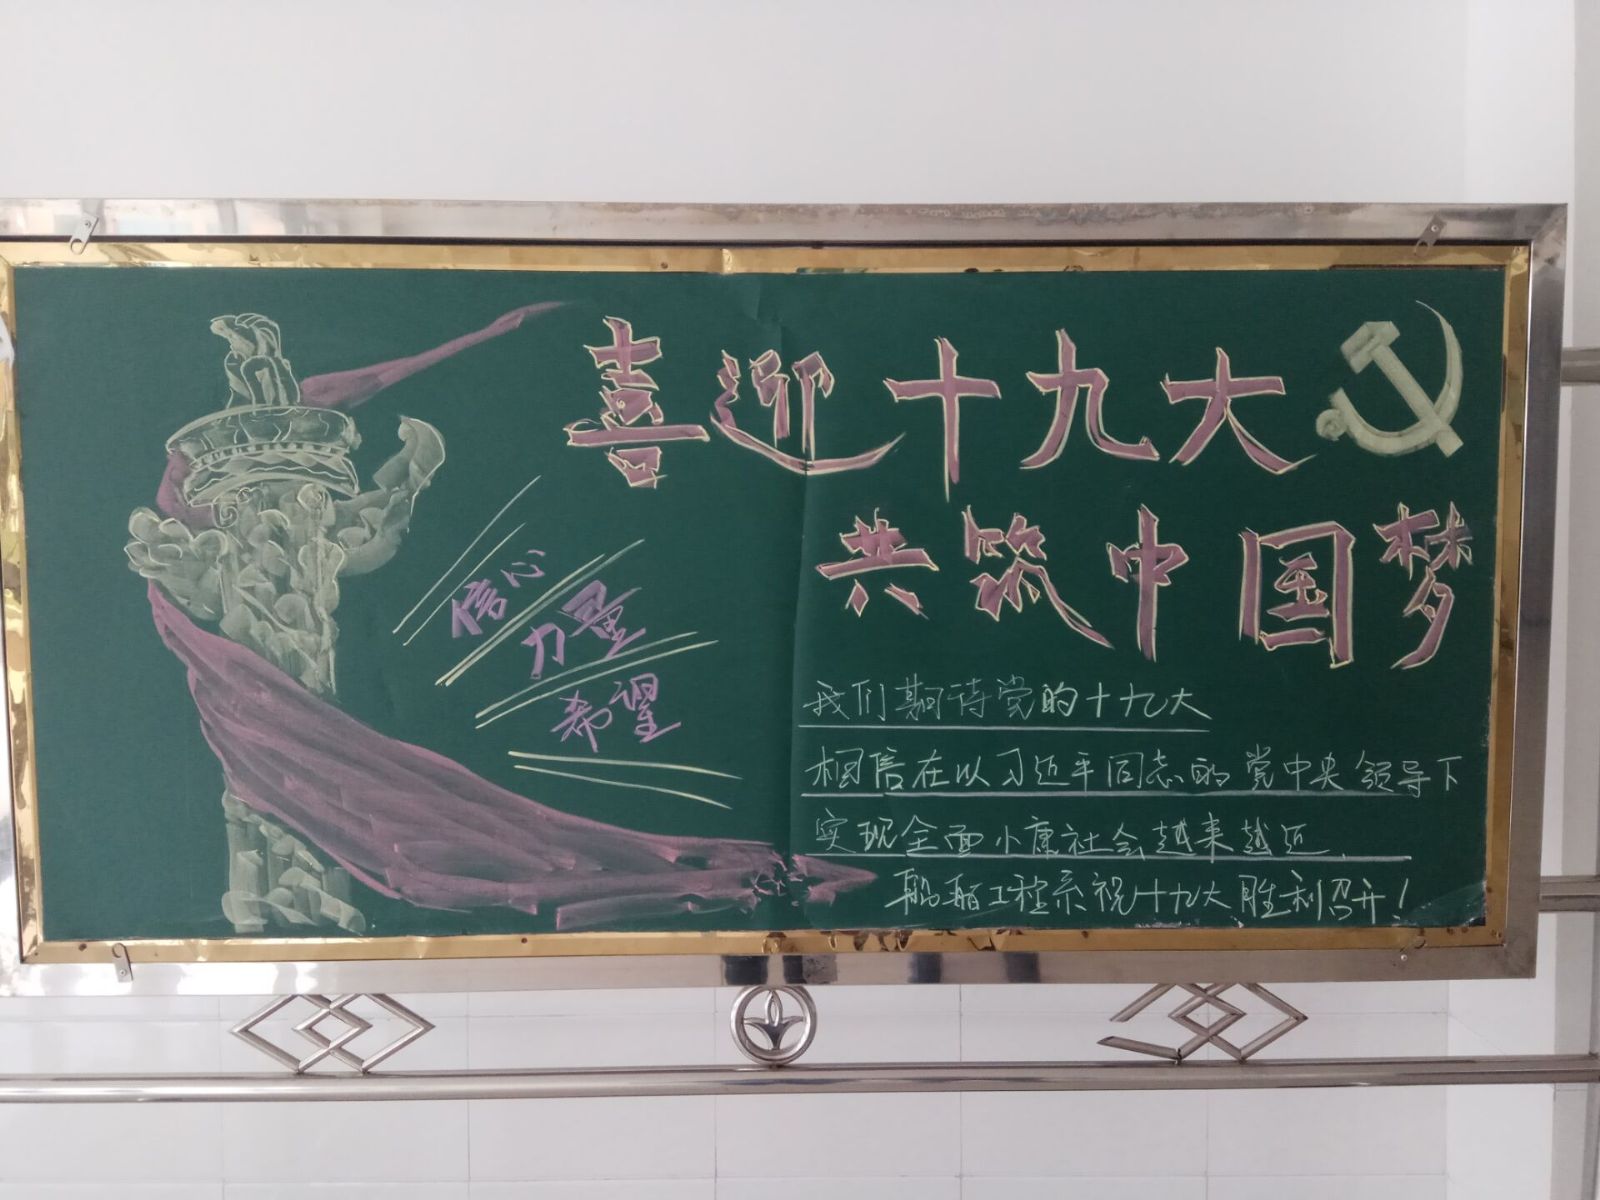 喜迎十九大
共筑中国梦
信心
力量
希望
我们期待党的十九大
相信在以习近平同志的党中央领导下
实现全面小康社会越来越近.
船舶工程系祝十九大胜利召开!